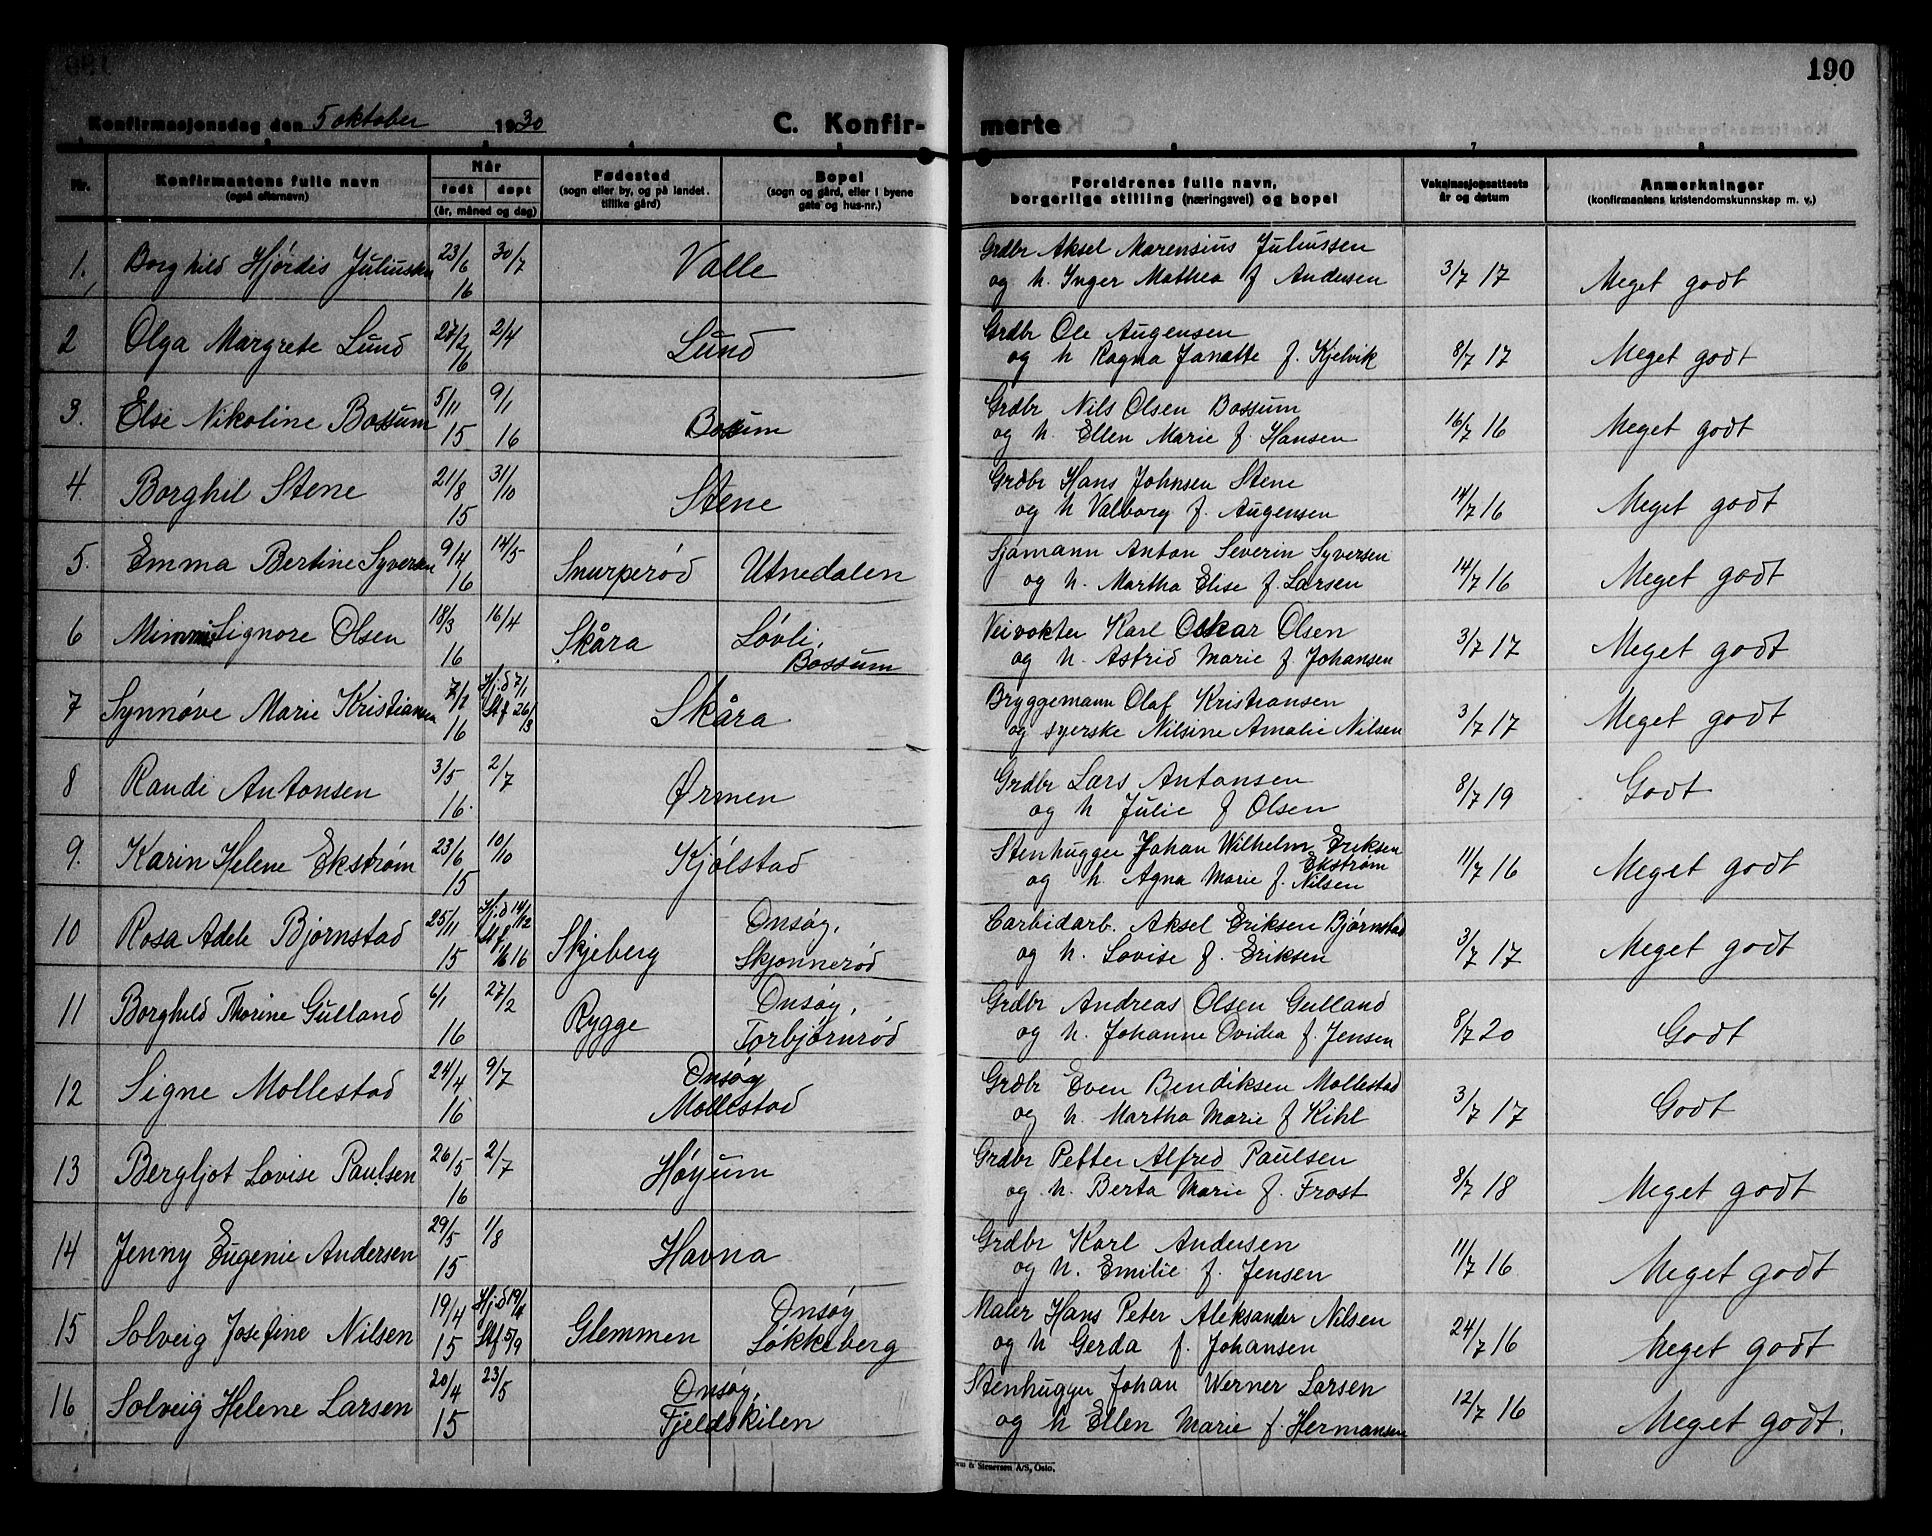 190
Konfirmasjonsdag den 5 oktober 1930 C. Konfir- merte
Nr. Konfirmantens fulle navn (også efternavn) Når født døpt (år, måned og dag) Fødested (sogn eller by, og på landet. tillike gård) Bopel (sogn og gård, eller i byene gate og hus-nr.) Foreldrenes fulle navn, borgerlige stilling (næringsvei) og bopel Vaksinasjonsattests år og datum Anmerkninger (konfirmantens kristendomskunnskap m. v.)
1. Borghild Hjördis Juliussen 23/6 16 30/7 Valle Grdbr Aksel Marensius Juliussen
og h. Inger Mathea f Andersen 3/7 17 Meget godt
2 Olga Margrete Lund 27/2 16 2/4 Lund Grdbr Ole Augensen
og h Ragna Janette f. Kjelvik 8/7 17 Meget godt
3. Else Nikoline Bossum 5/11 15 9/1 16 Bossum Grdbr Nils Olsen Bossum
og h. Ellen Marie f. Hansen 16/7 16 Meget godt
4. Borghil Stene 21/8 15 31/10 Stene Grdbr Hans Johnsen Stene
og h Valborg f. Augensen 14/7 16 Meget godt
5. Emma Bertine Syversen 9/4 16 14/5 Snurperød Utnedalen Sjømann Anton Severin Syversen
og h. Martha Elise f. Larsen 14/7 16 Meget godt
6 Mimmi Signore Olsen 18/3 16 16/4 Skåra Løvli, Bossum Veivokter Karl Oskar Olsen
og h. Astrid Marie f Johansen 3/7 17 Meget godt
7 Synnøve Marie Kristiansen 7/1 16 Hj.d 7/1 Stf 26/3 Skåra Bryggemann Olaf Kristiansen
og syerske Nilsine Amalie Nilsen 3/7 17 Meget godt
8 Randi Antonsen 3/5 16. 2/7 Ørmen Grdbr Lars Antonsen
og h Julie f Olsen 8/7 19 Godt
9. Karin Helene Ekstrøm 23/6 15 10/10 Kjølstad Stenhugger Johan Wilhelm Eriksen Ekstrøm
og h. Agna Marie f. Nilsen 11/7 16 Meget godt
10 Rosa Adele Bjørnstad 25/11 15 Hj.d 14/12 Stf 16 Skjeberg Onsøy, Skjønnerød Carbidarb. Aksel Eriksen Bjørnstad
og h. Lovise f. Eriksen 3/7 17 Meget godt
11 Borghild Thorine Gulland 6/1 16 27/2 Rygge Onsøy, Torbjørnrød Grdbr Andreas Olsen Gulland
og h. Johanne Ovidia f. Jensen 8/7 20 Godt
12 Signe Mollestad 24/4 16 9/7 Onsøy Mollestad Grdbr Even Bendiksen Mollestad
og h. Martha Marie f Kihl 3/7 17 Godt
13 Bergljot Lovise Paulsen 26/5 16 2/7 Høyum Grdbr Petter Alfred Paulsen
og h. Berta Marie f. Frost 8/7 18 Meget godt
14 Jenny Eugenie Andersen 29/5 15 1/8 Havna Grdbr Karl Andersen
og h. Emilie f. Jensen 11/7 16 Meget godt
15 Solveig Josefine Nilsen 19/4 15 Hj.d 19/4 Stf 5/9 Glemmen Onsøy Løkkeberg Maler Hans Peter Aleksander Nilsen
og h Gerda f. Johansen 24/7 16 Meget godt
16 Solveig Helene Larsen 20/4 15 23/5 Onsøy, Fjeldskilen Stenhugger Johan Werner Larsen
og h Ellen Marie f Hermansen 12/7 16 Meget godt.
& Stenersen A/S, Oslo.